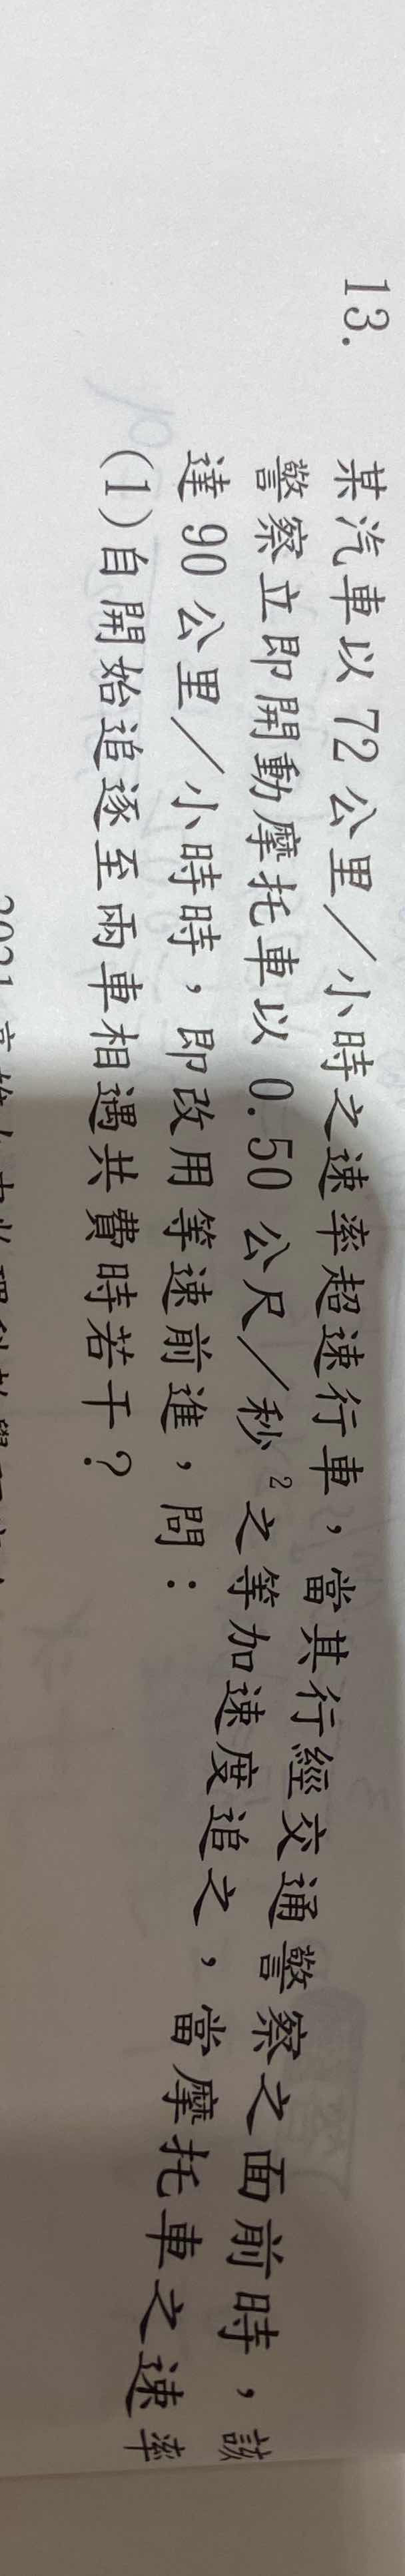 13. 某汽車以 72 公里／小時之速率超速行車，當其行經交通警察之面前時，該
警察立即開動摩托車以 0.50 公尺／秒² 之等加速度追之，當摩托車之速率
達 90 公里／小時時，即改用等速前進，問：
(1)自開始追逐至兩車相遇共費時若干？